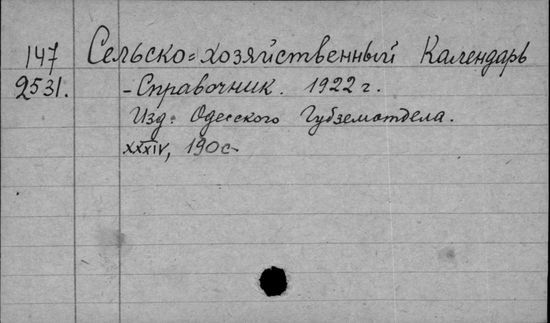 147 Сельско=хозяйственный Календарь
2531. -Справочник. 1922 г.
Изд. Одесского Губземотдела.
XXXIV, 190 с.